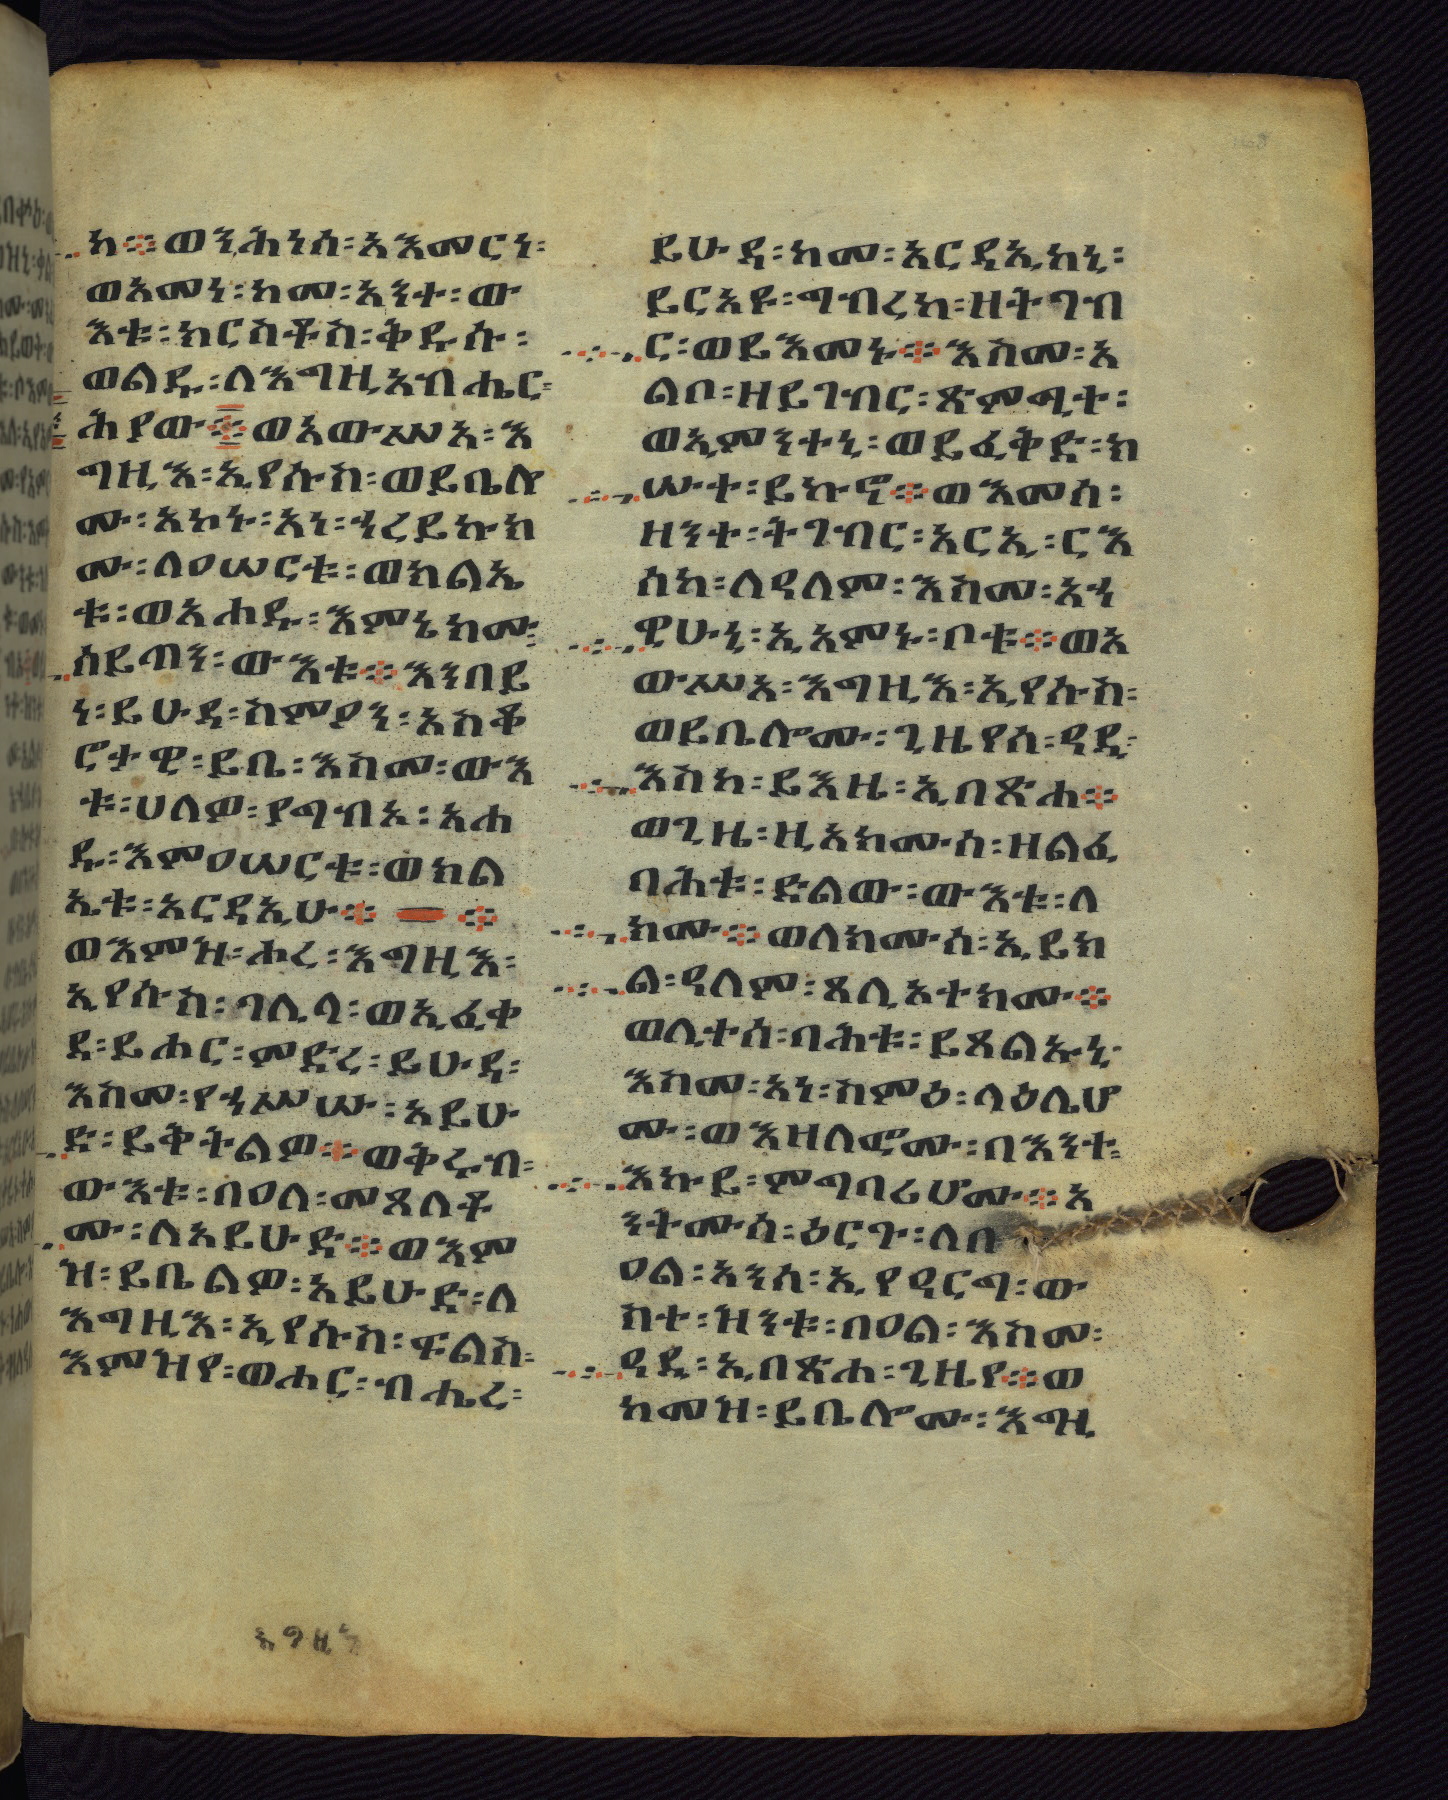 ከ፨ወንሕነሰ፡አእመርነ፡
ወአመነ፡ከመ፡አንተ፡ው
እቱ፡ክርስቶስ፡ቅዱሱ፡
ወልዱ፡ለእግዚአብሔር፡
ሕያው፨ወአውሥአ፡እ
ግዚእ፡ኢየሱስ፡ወይቤሎ
ሙ፡አኮኑ፡አነ፡ኀረይኩክ
ሙ፡ለዐሠርቱ፡ወክልኤ
ቱ፡ወአሐዱ፡እምኔክሙ፡
ሰይጣን፡ውእቱ፨እንበይ
ነ፡ይሁዳ፡ስምዖን፡አስቆ
ሮታዊ፡ይቤ፡እስመ፡ውእ
ቱ፡ሀለዎ፡ያግብኦ፡አሐ
ዱ፡እምዐሠርቱ፡ወክል
ኤቱ፡አርዳኢሁ፨ ፨
ወእምዝ፡ሖረ፡እግዚእ፡
ኢየሱስ፡ገሊላ፡ወኢፈቀ
ደ፡ይሑር፡ምድረ፡ይሁዳ፡
እስመ፡የኀሥሡ፡አይሁ
ድ፡ይቅትልዎ፨ወቅሩብ፡
ውእቱ፡በዐለ፡መጸለቶ
ሙ፡ለአይሁድ፨ወእም
ዝ፡ይቤልዎ፡አይሁድ፡ለ
እግዚእ፡ኢየሱስ፡ፍልስ፡
እምዝየ፡ወሑር፡ብሔረ፡
ይሁዳ፡ከመ፡አርዳኢከኒ፡
ይርአዩ፡ግብረከ፡ዘትገብ
ር፡ወይእመኑ፨እስመ፡አ
ልቦ፡ዘይገብር፡ጽምሚተ፡
ወኢምንተኒ፡ወይፈቅድ፡ክ
ሡተ፡ይኩኖ፨ወእመሰ፡
ዘንተ፡ትገብር፡አርኢ፡ርእ
ሰከ፡ለዓለም፡እስመ፡አኀ
ዊሁኒ፡ኢአምኑ፡ቦቱ፨ወአ
ውሥአ፡እግዚእ፡ኢየሱስ፡
ወይቤሎሙ፡ጊዜየሰ፡ዓዲ፡
እስከ፡ይእዜ፡ኢበጽሐ፨
ወጊዜ፡ዚአክሙሰ፡ዘልፈ፡
ባሕቱ፡ድልው፡ውእቱ፡ለ
ክሙ፨ወለክሙሰ፡ኢይክ
ል፡ዓለም፡ጸሊኦተክሙ፨
ወሊተሰ፡ባሕቱ፡ይጸልኡኒ፡
እስመ፡አነ፡ስምዕ፡ላዕሌሆ
ሙ፡ወእዘለፎሙ፡በእንተ፡
እኩይ፡ምግባሪሆሙ፨አ
ንትሙሰ፡ዕርጉ፡ለበ
ዐል፡አንሰ፡ኢየዓርግ፡ው
ስተ፡ዝንቱ፡በዐል፡እስመ፡
ዓዲ፡ኢበጽሐ፡ጊዜየ፨ወ
ከመዝ፡ይቤሎሙ፡እግዚ